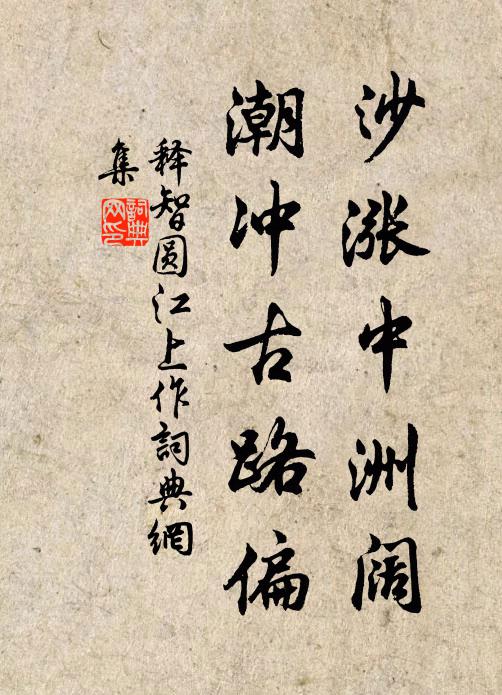 沙涨中洲阔
潮冲古路偏
释智圆江上作詞典網
集
詞典
网印